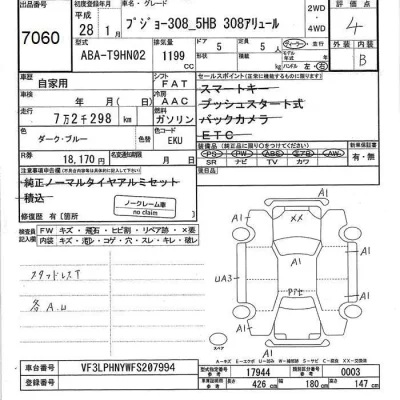 出品番号
7060
初度登録年月
平成
28年
1月
車名・グレード
プジョー308_5HB 308アリュール
2WD・4WD
評価点
4
型式
ABA-T9HN02
排気量
1199
ドア
5
定員
5
人
外装
内装
B
車歴
自家用
シフト
FAT
セールスポイント
スマートキー
プッシュスタート式
バックカメラ
ETC
車検
年 月( 日)
冷房
AAC
走行
7万2千298
km
燃料
ガソリン
外装色
ダーク・ブルー
色替
色コード
EKU
R券
18,170円
月 日
装備
PS
PW
ABS
エアB
AW
SR
ナビ
TV
カワ
新車保証書
有・無
後日品
注意事項申告欄
純正ノーマルタイヤアルミセット
積込
ノークレーム車
no claim
修復歴 有 [箇所
検査員記入欄
FW
キズ・飛石・ヒビ割・リペア跡・×要
内装
キズ・汚レ・コゲ・穴・スレ・キレ・破レ
スタッドレスT
各A.U
A1
A1
××
A1
A1
UA3
A1
A1
A1
A1
車台番号
VF3LPHNYWFS207994
登録番号
型式指定番号
17944
類別区分番号
0003
車のサイズ
長さ
426
cm
幅
180
cm
高さ
147
cm